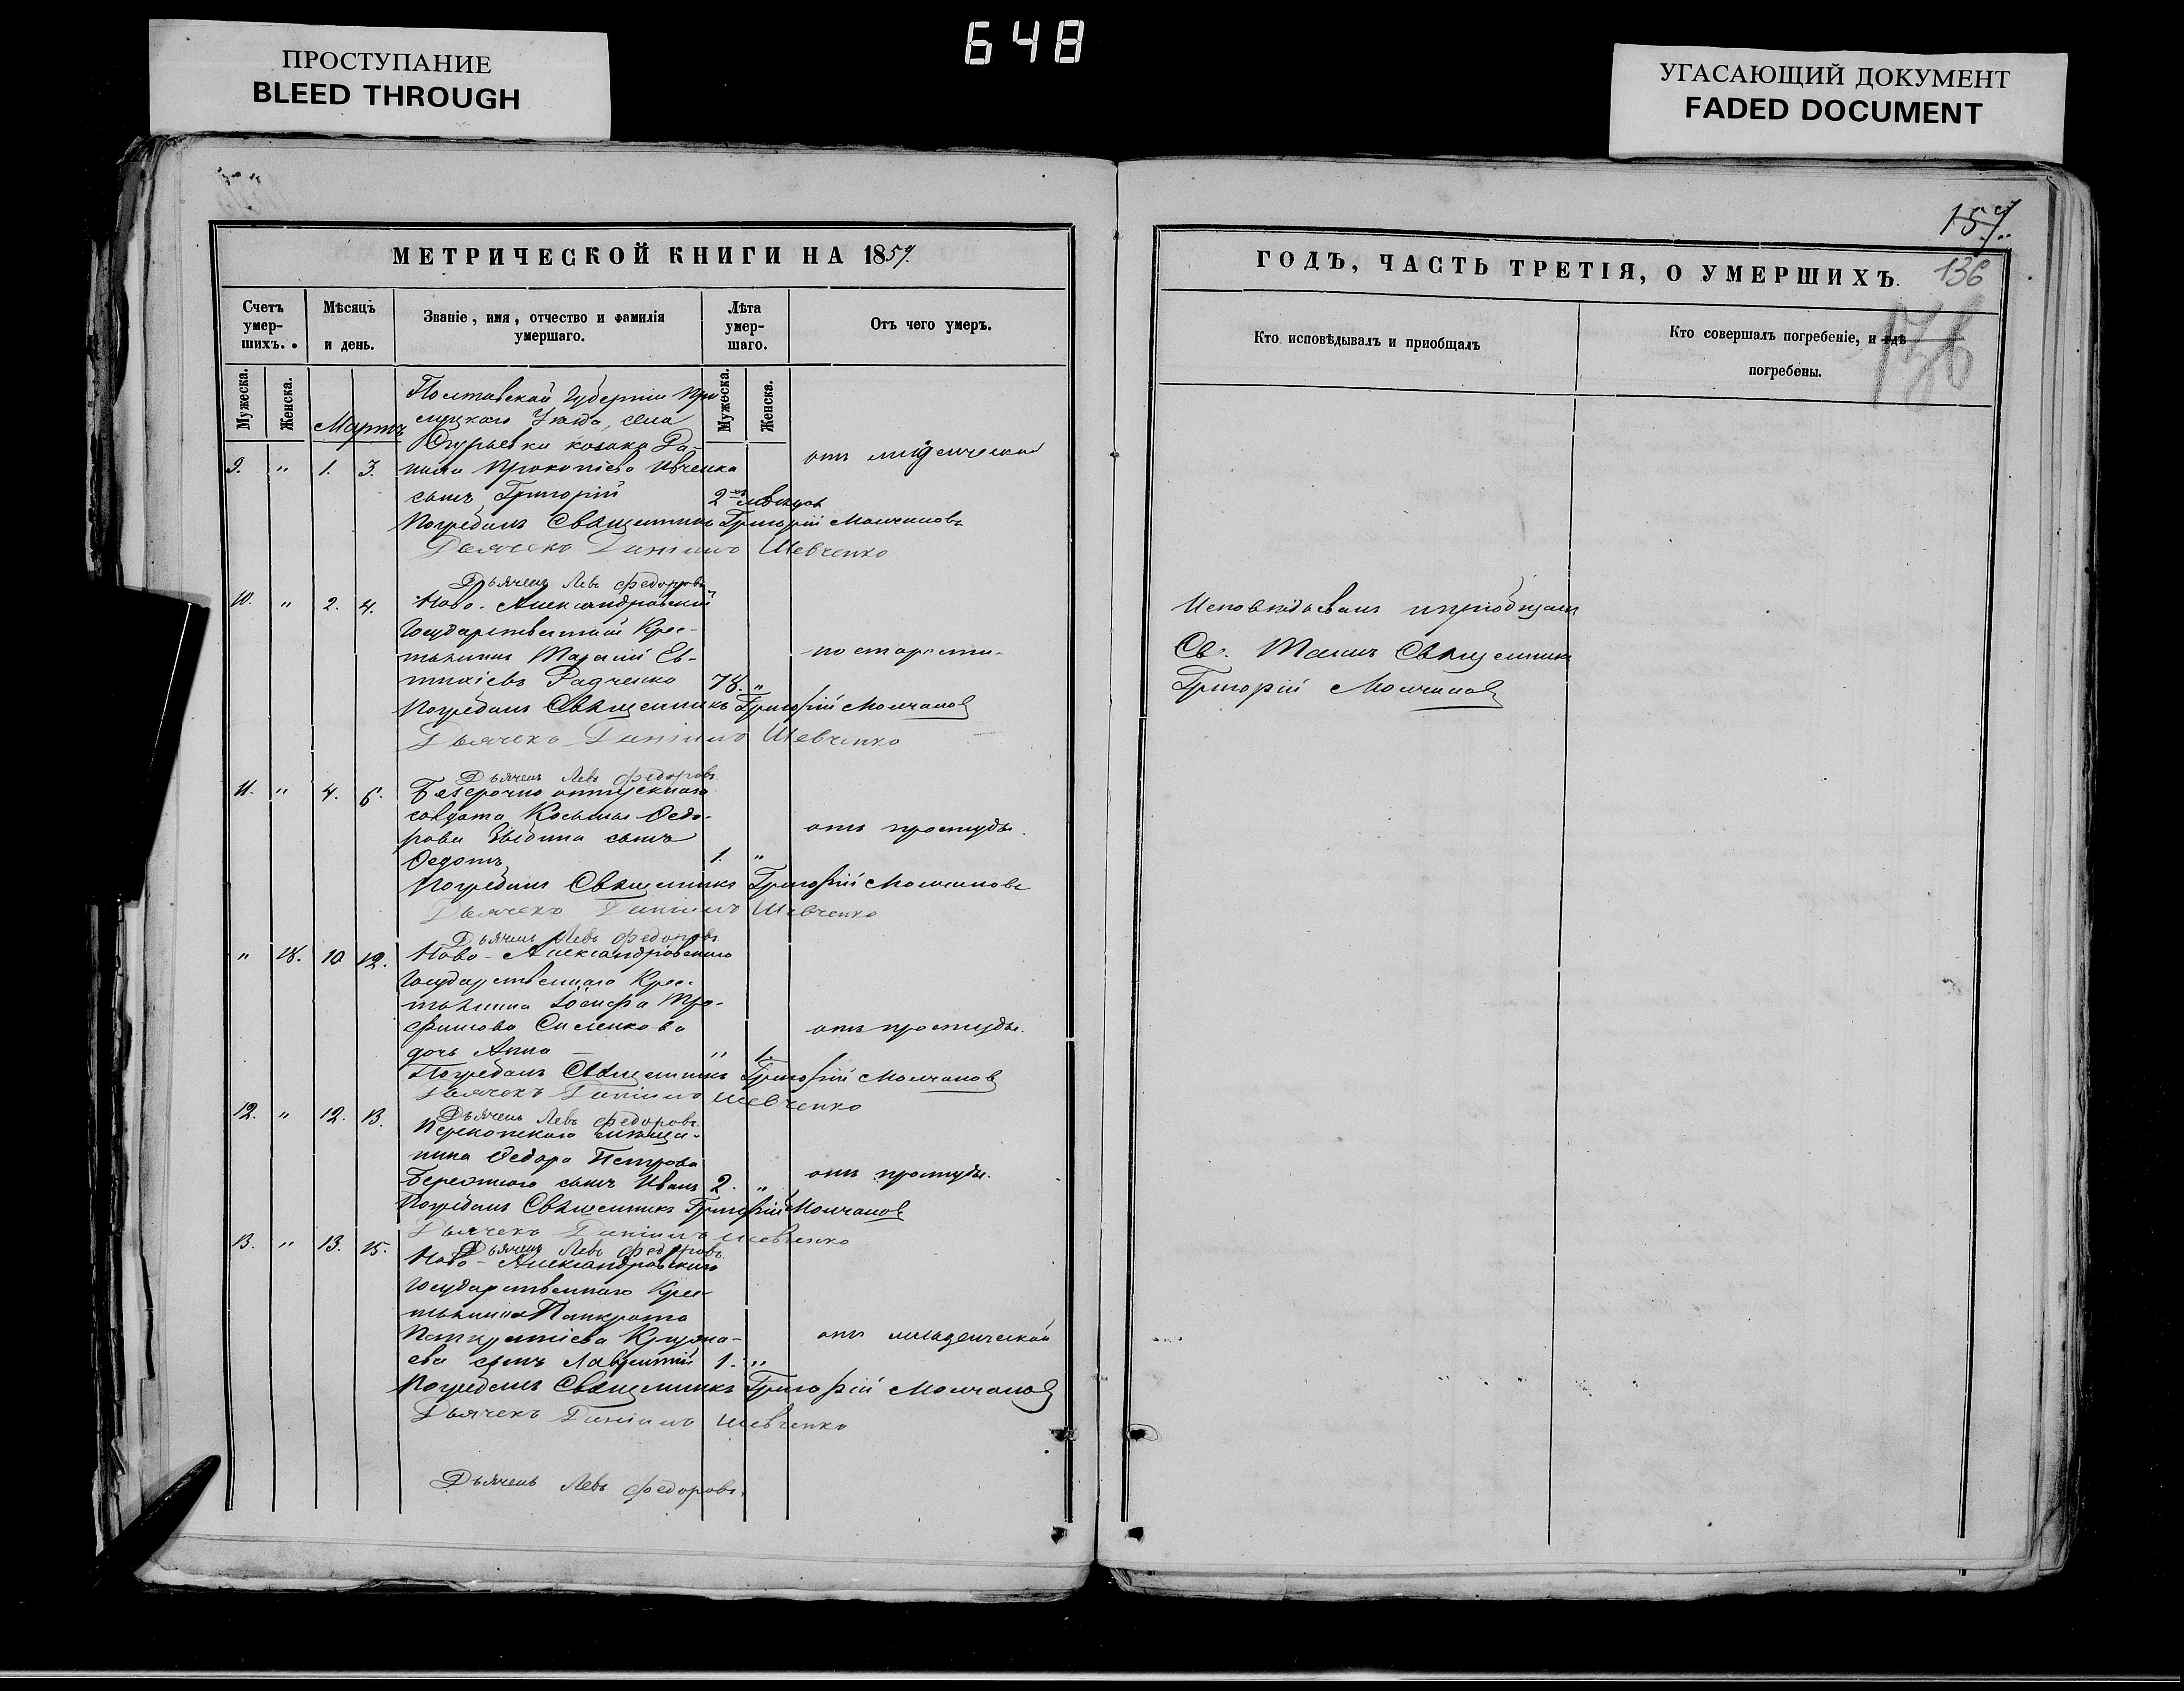 648
ПРОСТУПАНИЕ
BLEED THROUGH
УГАСАЮЩИЙ ДОКУМЕНТ
FADED DOCUMENT
МЕТРИЧЕСКОЙ КНИГИ НА 1859.
Счетъ умер-шихъ.
Мѣсяцъ и день.
Званіе, имя, отчество и фамилія умершаго.
Лѣта умер-шаго.
Отъ чего умеръ.
Мужеска.
Женска.
Мужеска.
Женска.
Мартъ
Полтавской Губерніи При
луцкаго Уѣзда, села
Огурьевки козака Да-
9. " 1. 3. нила Прокопіева Ивченка
отъ младенческой
сынъ Григорій 2хъ мѣсяцовъ
Погребалъ Священникъ Григорій Молчановъ
Дьячекъ Даніилъ Шевченко
Дьячекъ Левъ Федоровъ
10. " 2. 4. Ново-Александровскій
Государственный Крес-
тьянинъ Тарасій Ев-
по старости.
тихіевъ Радченко 78. "
Погребалъ Священникъ Григорій Молчановъ
Дьячекъ Даніилъ Шевченко
Дьячекъ Левъ Федоровъ
11. " 4. 6. Безсрочно отпускнаго
солдата Косьмы Федо-
рова сынъ
отъ простуды.
Федотъ 1. "
Погребалъ Священникъ Григорій Молчановъ
Дьячекъ Даніилъ Шевченко
Дьячекъ Левъ Федоровъ
" 18. 10 12. Ново-Александровскаго
Государственнаго Крес-
тьянина Іосифа Тро-
фимова
отъ простуды.
дочь Анна " 1.
Погребалъ Священникъ Григорій Молчановъ
Дьячекъ Даніилъ Шевченко
Дьячекъ Левъ Федоровъ.
12. " 12. 13. Перекопскаго мѣща-
нина Федора Петрова
сынъ Иванъ 2. " отъ простуды.
Погребалъ Священникъ Григорій Молчановъ
Дьячекъ Даніилъ Шевченко
Дьячекъ Левъ Федоровъ.
13. " 13. 15. Ново-Александровскаго
Государственнаго Крес-
тьянина Панкрата
Панкратіева
отъ младенческой
сынъ Лаврентій 1. "
Погребалъ Священникъ Григорій Молчановъ
Дьячекъ Даніилъ Шевченко
Дьячекъ Левъ Федоровъ.
157.
136
ГОДЪ, ЧАСТЬ ТРЕТІЯ, О УМЕРШИХЪ.
Кто исповѣдывалъ и пріобщалъ
Кто совершалъ погребеніе, и гдѣ погребены.
Исповѣдывалъ и пріобщалъ
Св. Таинъ Священникъ
Григорій Молчановъ